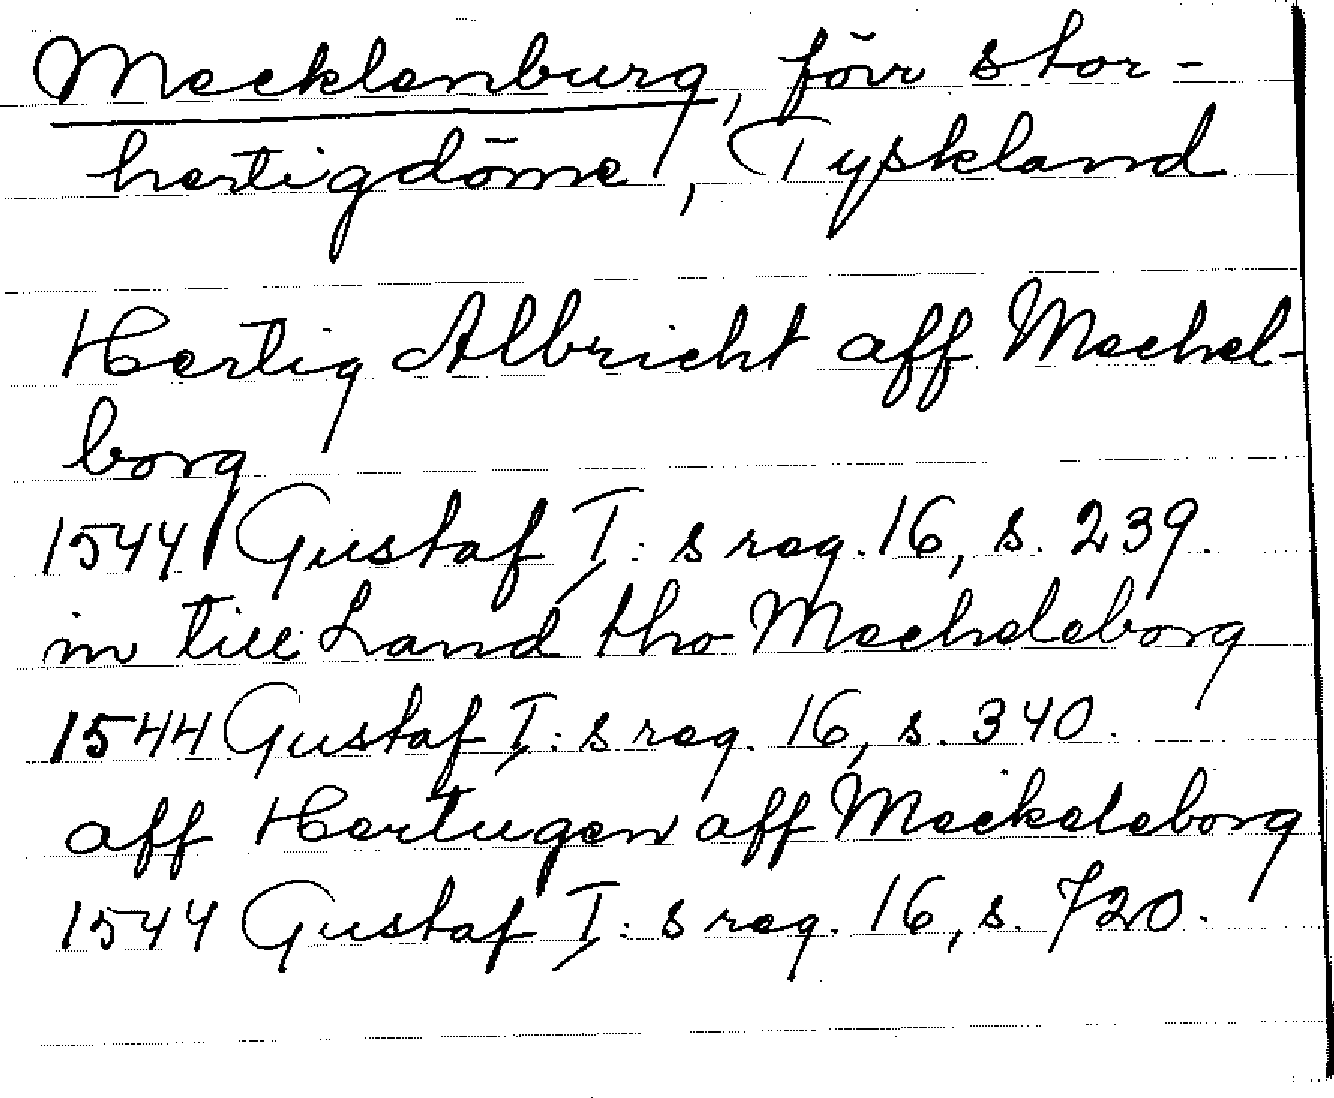 Mecklenburg, förr stor-
hertigdöme, Tyskland
Hertig Albricht aff Mechel-
borg
1544 Gustaf I:s reg. 16, s. 239.
in till Land tho Mecheleborg
1544 Gustaf I:s reg. 16, s. 340.
aff Hertugen aff Meckeleborg
1544 Gustaf I:s reg. 16, s. 720.